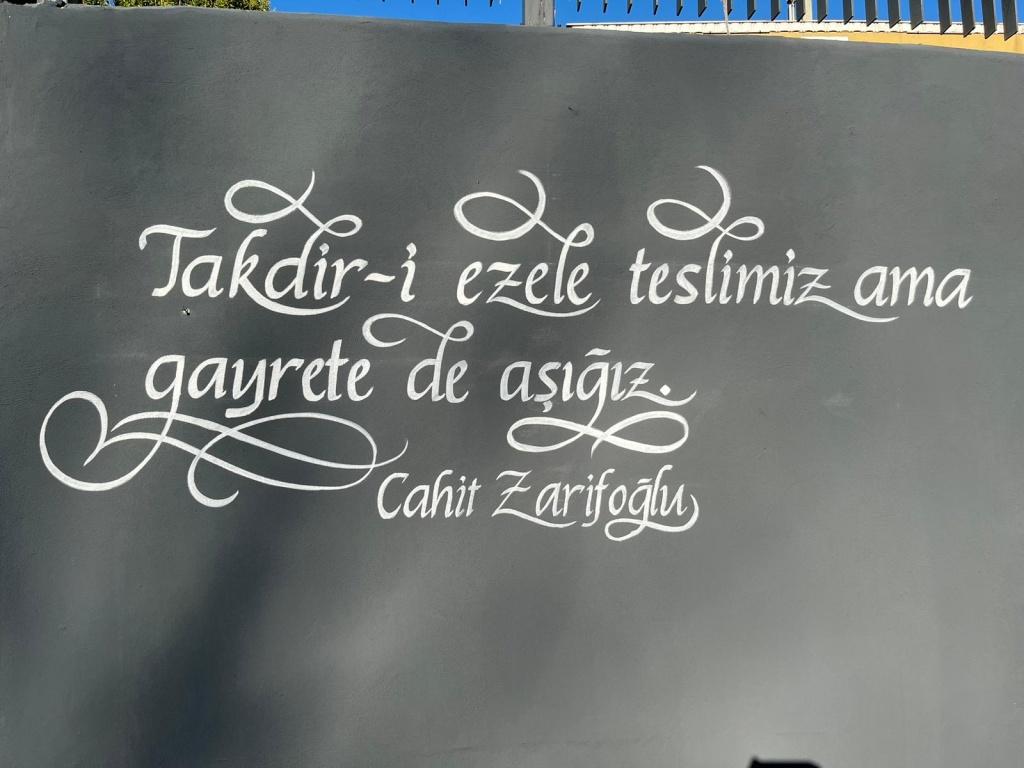 Takdir-i ezele teslimiz ama
gayrete de aşığız.
Cahit Zarifoğlu